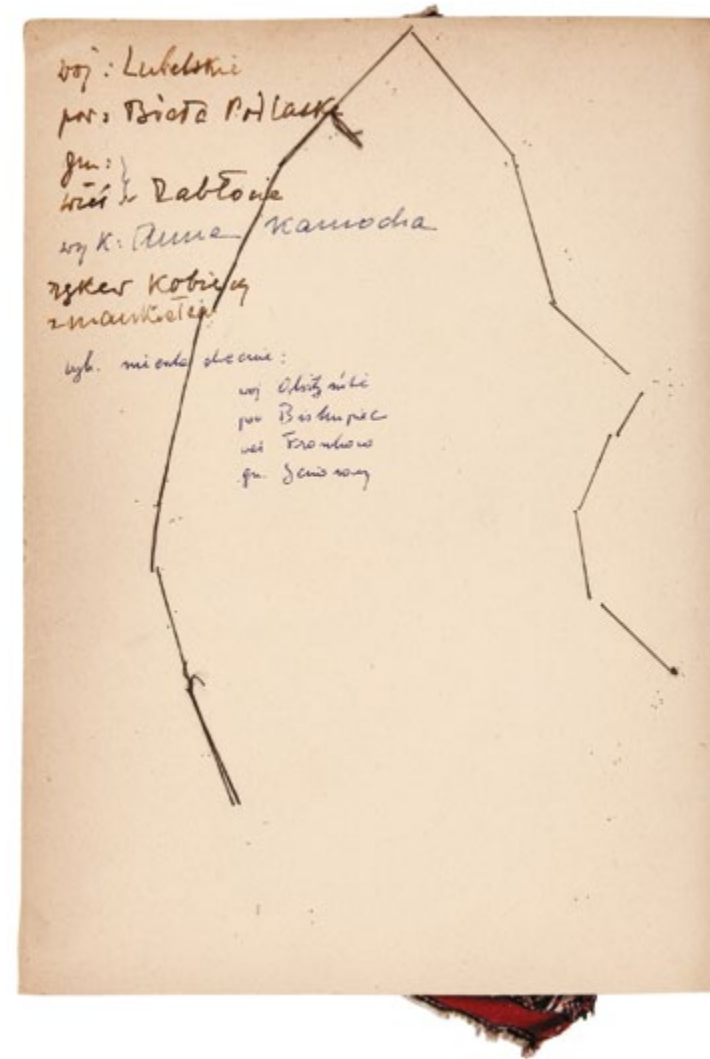 woj: Lubelskie
pow: Biała Podlaska
gm: }
wieś } Zabłocie
wyk: Anna Kamocha
rękaw kobiecy
z mankietem
wyk. mieszka obecnie:
woj Olsztyński
pow Biskupiec
wieś Frankowo
gm. Jeziorany